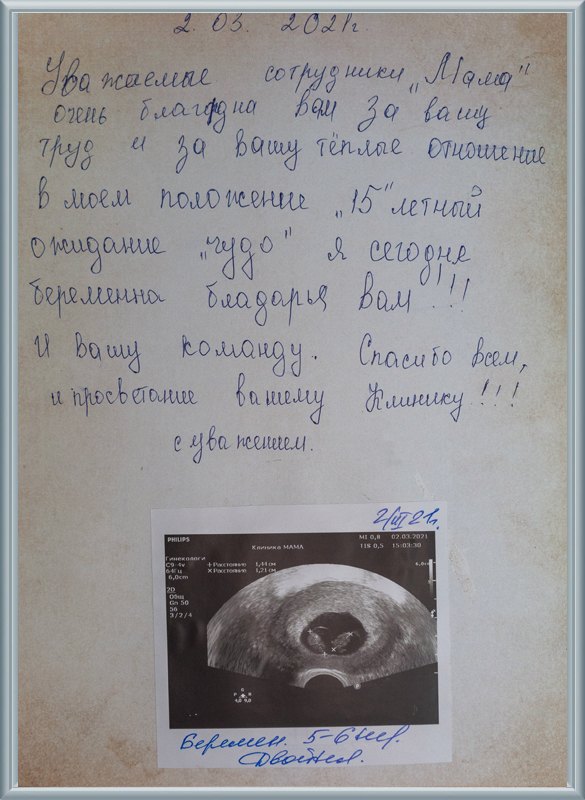 2. 03. 2021г.
Уважаемые сотрудники „Мама"
очень благодна вам за вашу
труд и за вашу тёплые отношение
в моем положение „15" летный
ожидание „чудо" я сегодня
беременна бладарья вам!!!
И вашу команду. Спасибо всем,
и просветание вашему Клинику!!!
с уважением.
2/III 21г.
PHILIPS
MI 0,8 02.03.2021
Клиника МАМА
TIS 0,5 15:03:30
Гинекологи
C9-4v + Расстояние 1,44 см
64Гц × Расстояние 1,21 см
6,0cm
6,0см
2D
Общ
Gn 50
56
3/2/4
Беремен. 5-6 нед.
Двойня.